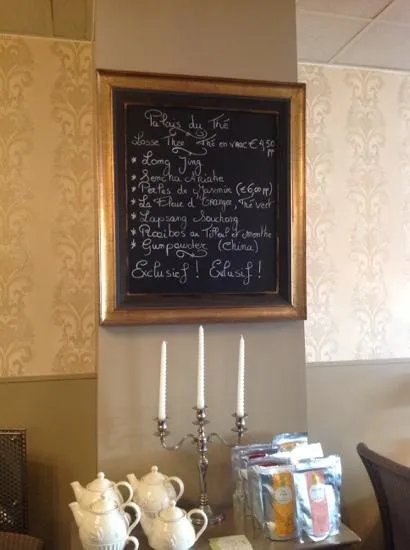 Palais du Thé
Losse Thee - Thé en vrac € 4,50 pp
* Long Jing
* Sencha Ariake
* Perles de Jasmin (€6,00 pp)
* La Fleur d'Oranger, Thé vert
* Lapsang Souchong
* Rooibos au Tilleul et menthe
* Gunpowder (China)
Exclusief! Exlusif!